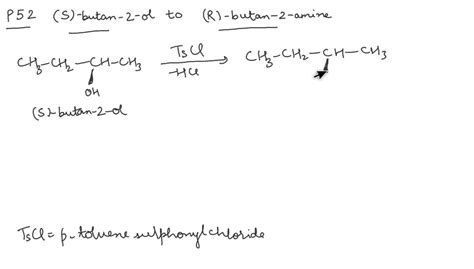 P52 (S)-butan-2-ol to (R)-butan-2-amine
CH3-CH2-CH-CH3 TsCl CH3-CH2-CH-CH3
-HCl
OH
(S)-butan-2-ol
TsCl = p-toluene sulphonylchloride